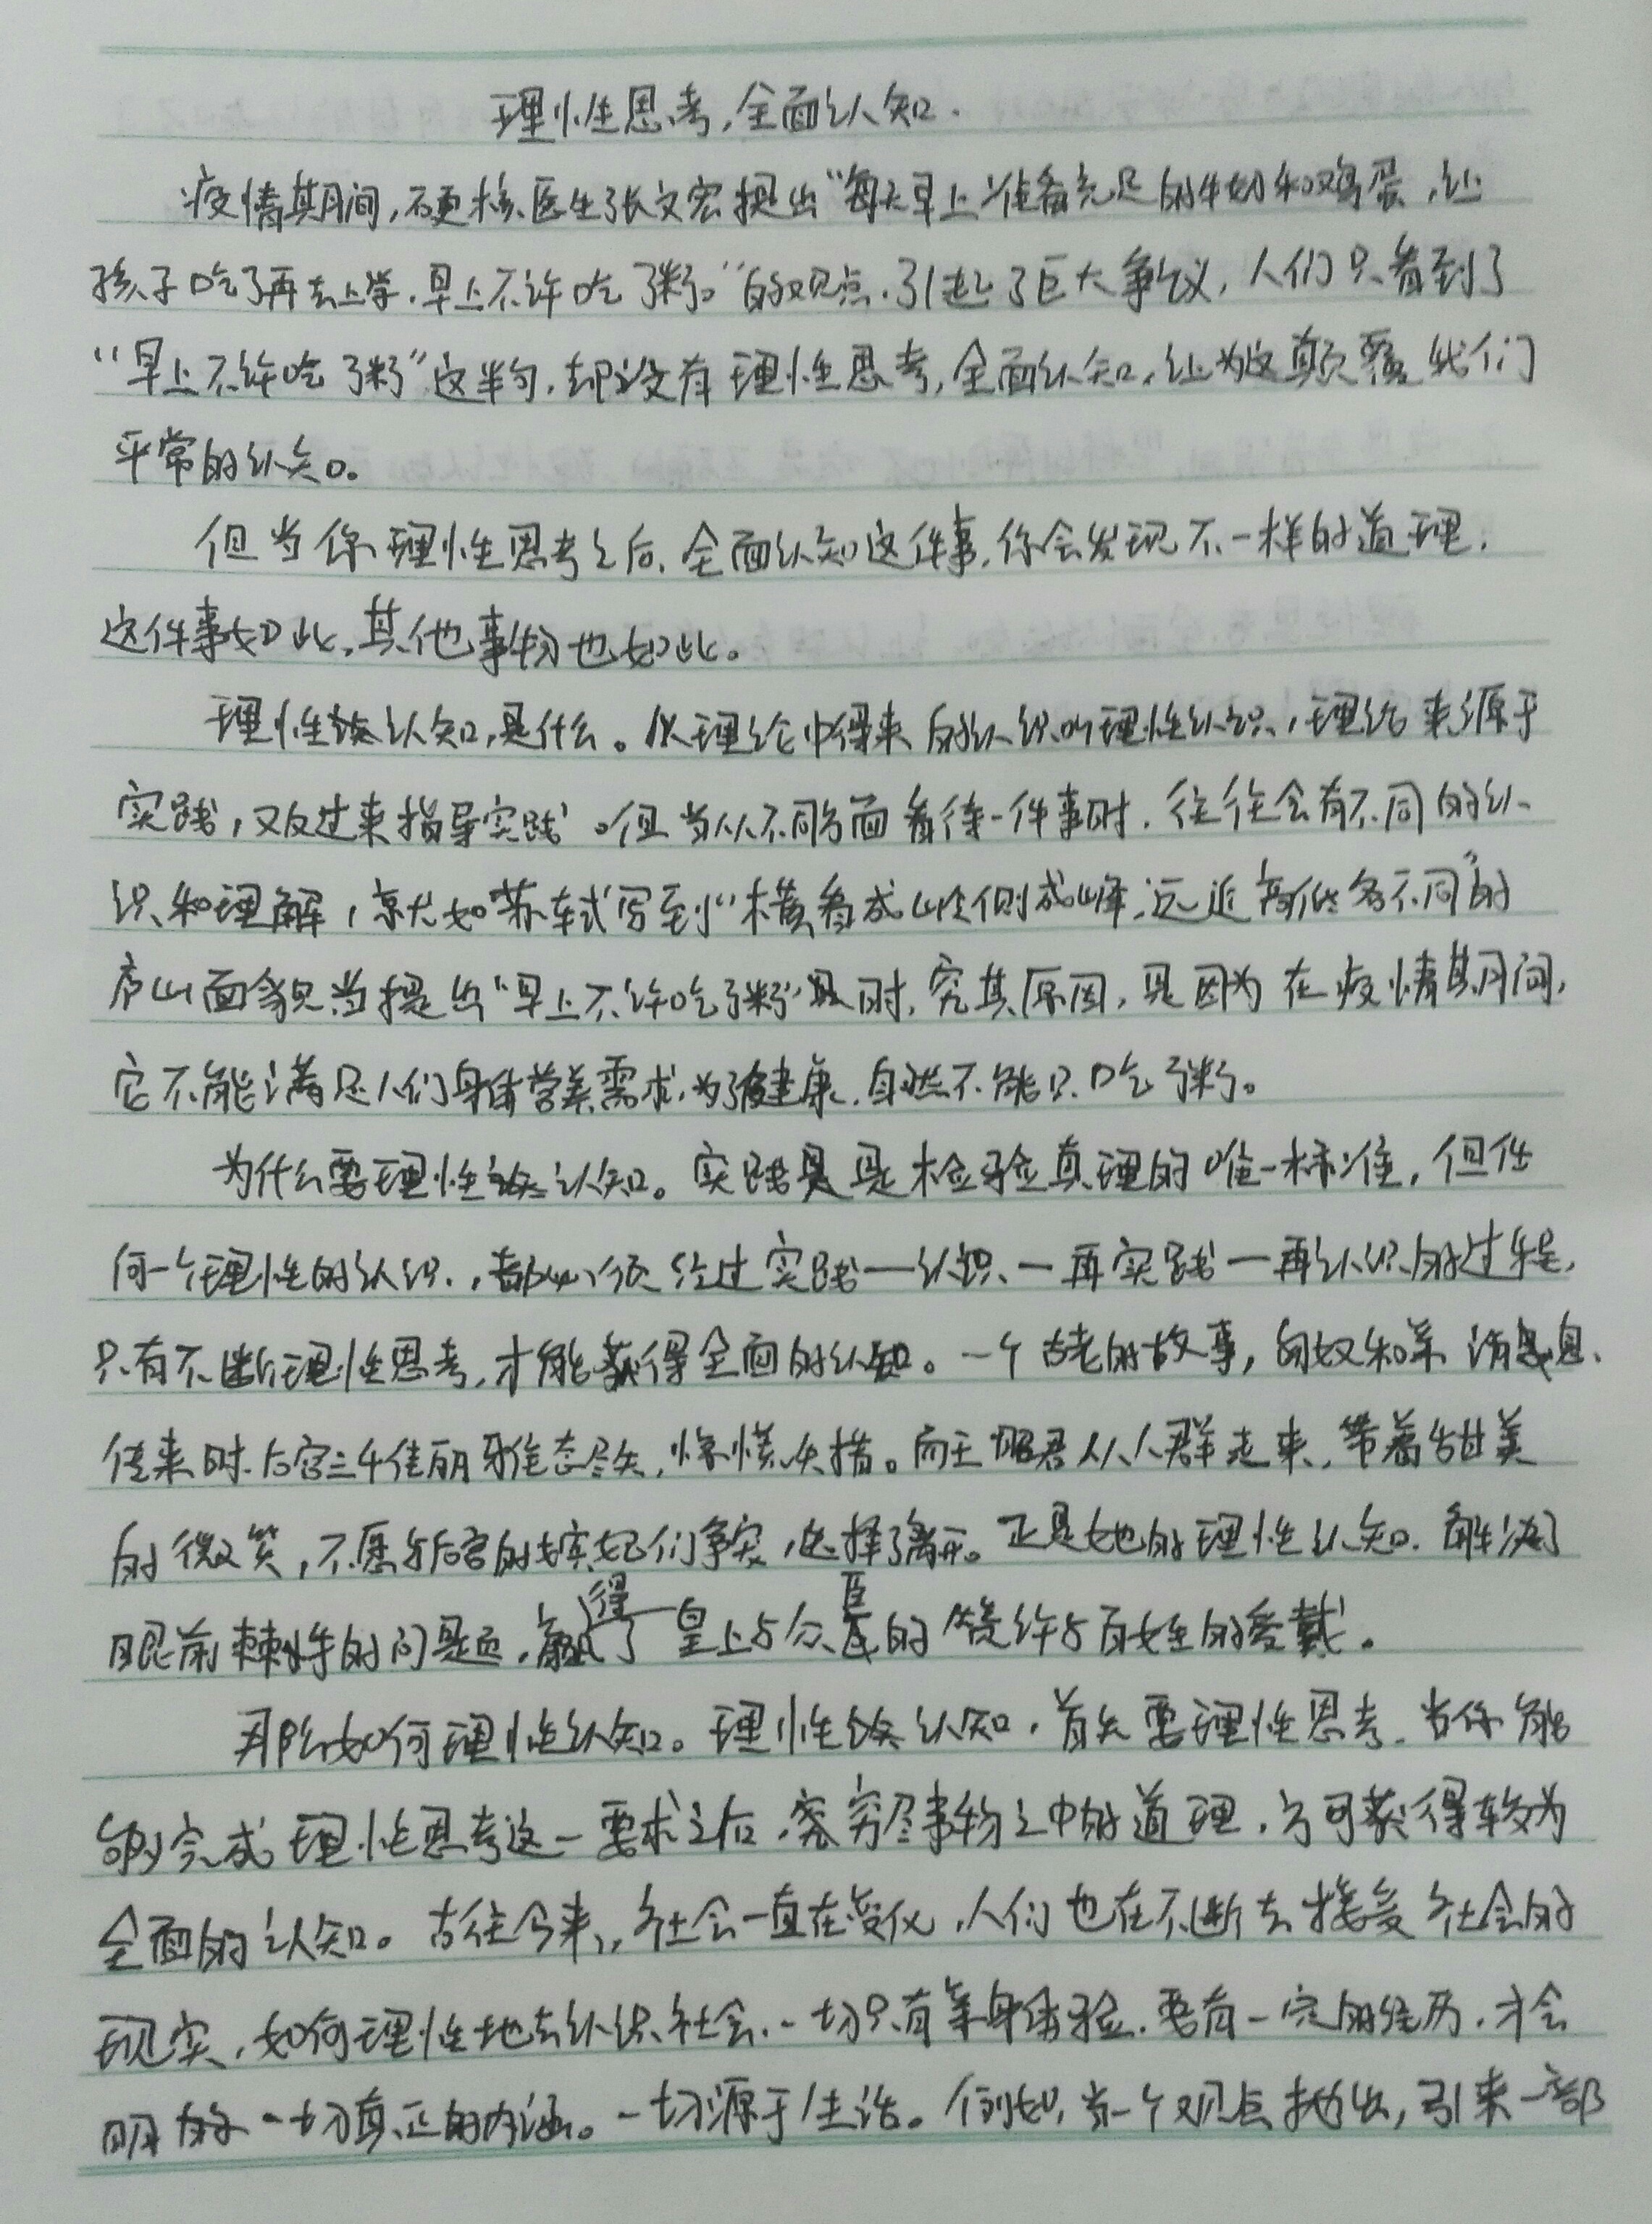 理性思考,全面认知.
疫情期间,硬核医生张文宏提出“每天早上准备充足的牛奶和鸡蛋,让
孩子吃了再去上学.早上不许吃粥。”的观点.引起了巨大争议,人们只看到了
“早上不许吃粥”这半句,却没有理性思考,全面认知,认为这颠覆我们
平常的认知。
但当你理性思考之后,全面认知这件事,你会发现不一样的道理.
这件事如此,其他事物也如此。
理性认知,是什么。从理论中得来的认识叫理性认识,理论来源于
实践,又反过来指导实践。但当从不同方面看待一件事时.往往会有不同的认
识和理解,就犹如苏轼写到“横看成岭侧成峰,远近高低各不同”的
庐山面貌当提出“早上不许吃粥”时,究其原因,是因为在疫情期间,
它不能满足人们身体营养需求,为了健康.自然不能只吃粥。
为什么要理性认知。实践是检验真理的唯一标准,但任
何一个理性的认识.,都必须经过实践—认识—再实践—再认识的过程,
只有不断理性思考,才能获得全面的认知。一个古老的故事,匈奴和亲消息
传来时.后宫三千佳丽雅态尽失,惊慌失措。而王昭君从人群走来,带着甜美
的微笑,不愿与后宫的嫔妃们争宠,选择了离开。正是她的理性认知.解决了
眼前棘手的问题,赢得了皇上与众臣的赞许与百姓的爱戴。
那么如何理性认知。理性认知,首先要理性思考.当你能
够完成理性思考这一要求之后,穷尽事物之中的道理,方可获得较为
全面的认知。古往今来,社会一直在变化,人们也在不断去接受社会的
现实,如何理性地去认识社会.一切只有亲身体验.要有一定的经历.才会
明白一切真正的内涵。一切源于生活。例如,当一个观点抛出,引来一部